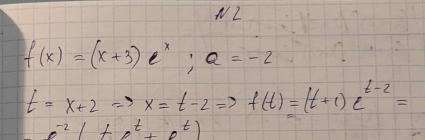 N2
f(x) = (x+3) e^x ; a = -2
t = x+2 => x = t-2 => f(t) = (t+1) e^{t-2} =
= e^{-2} (t e^t + e^t)